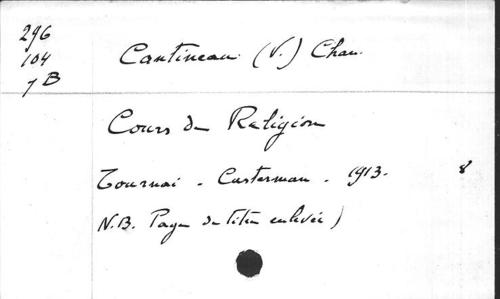 296
104
7B
Cantineau (V.) Chan.
Cours de Religion
Tournai - Casterman - 1913. 8
N.B. Page de titre enlevée)